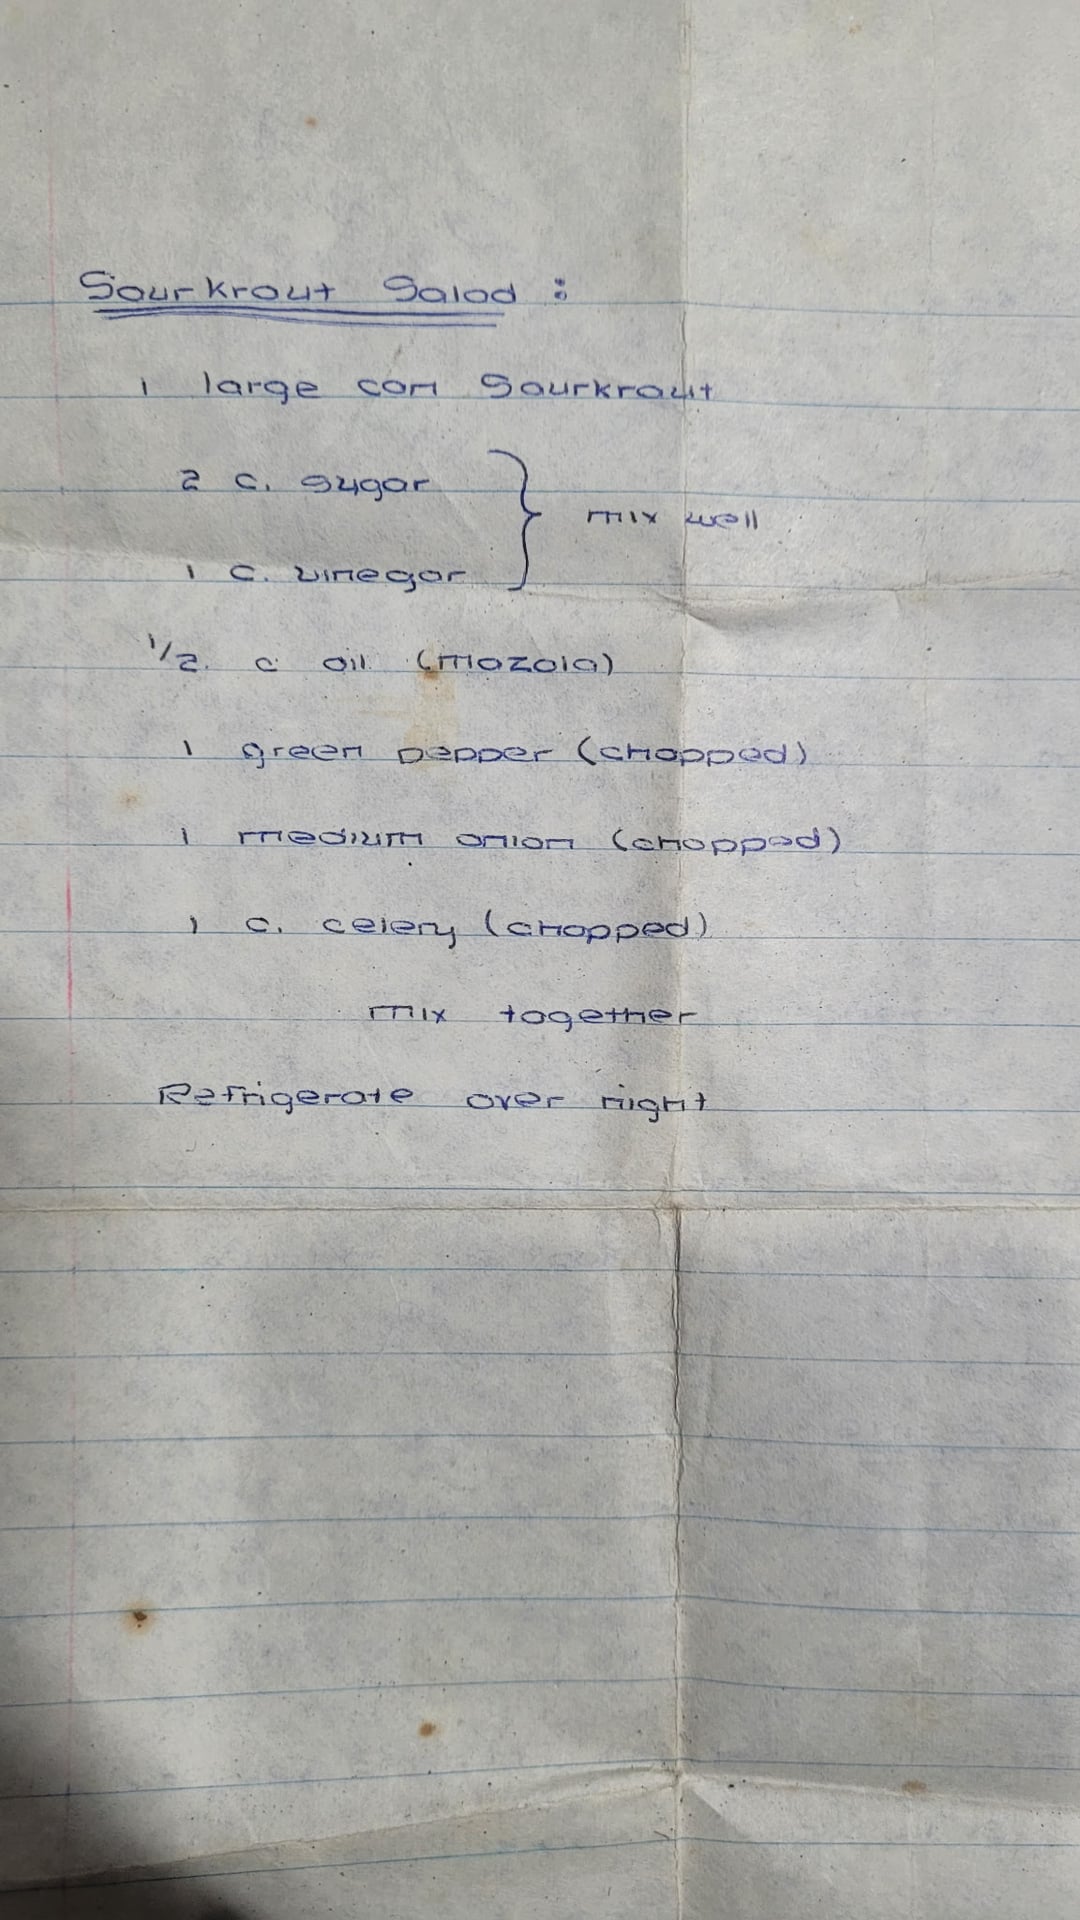 Sourkraut Salad :
1 large can Sourkraut
2 c. sugar
mix well
1 c. vinegar
1/2. c oil (mazola)
1 green pepper (chopped)
1 medium onion (chopped)
1 c. celery (chopped)
mix together
Refrigerate over night